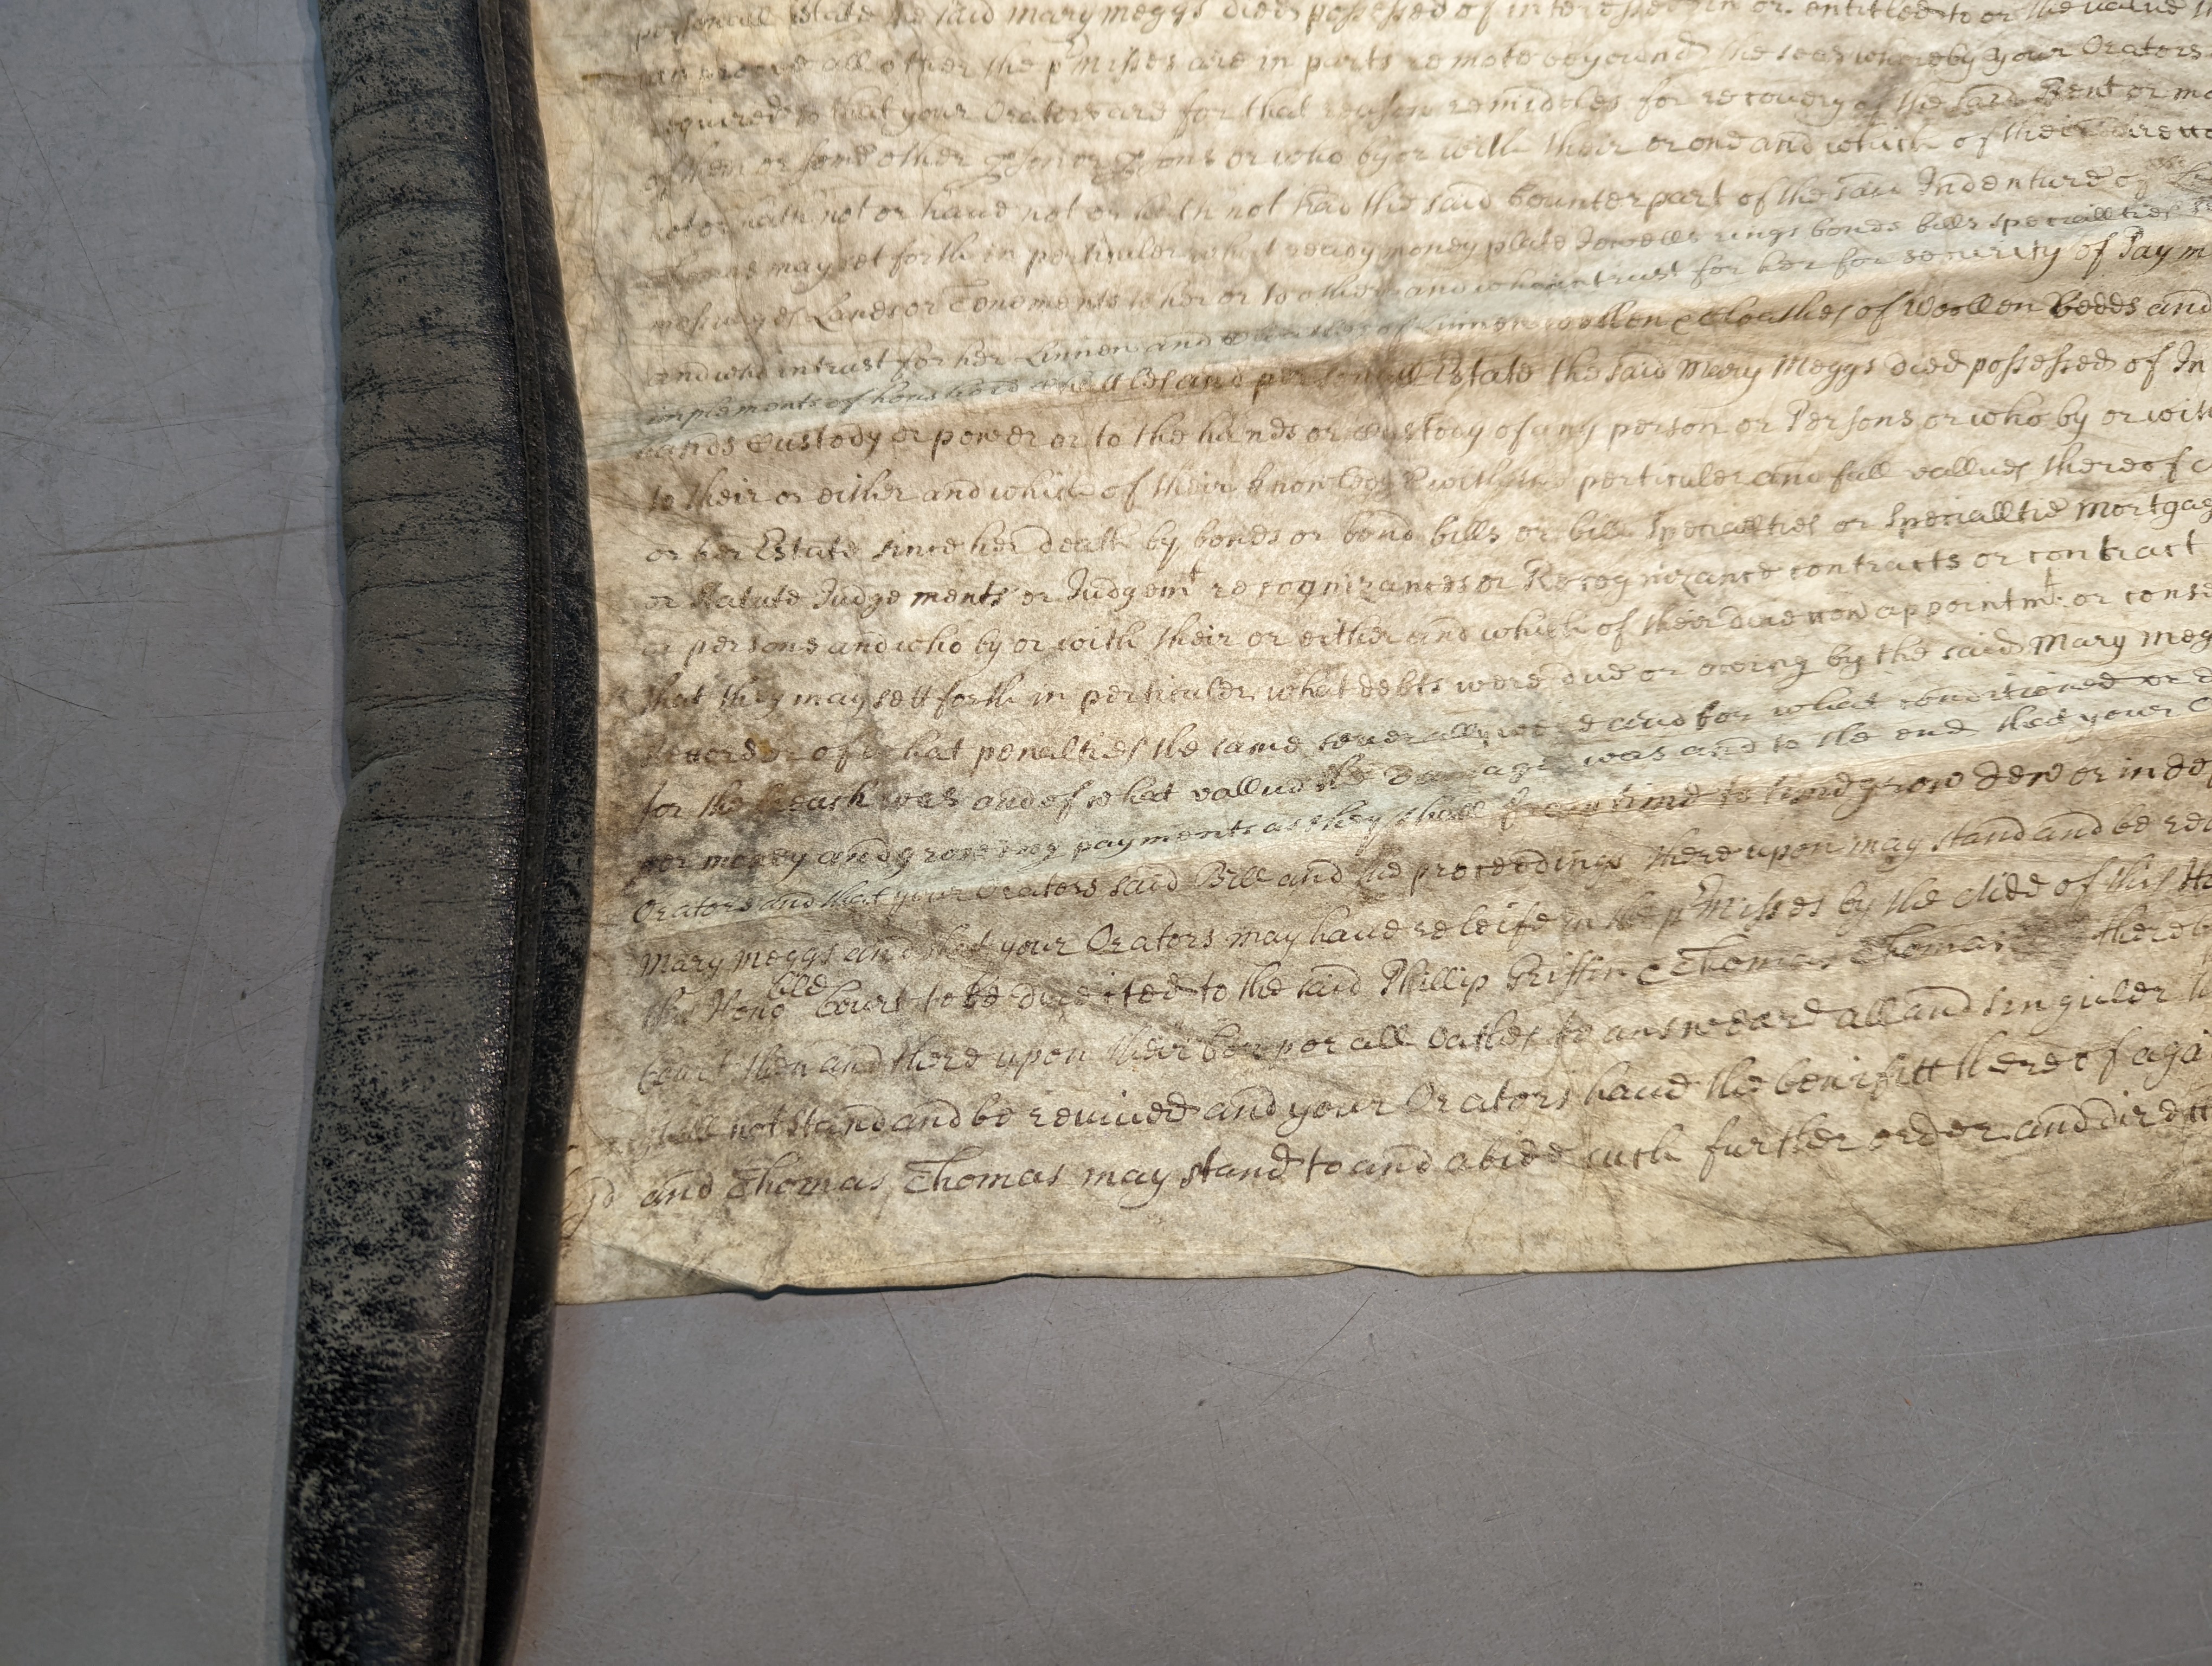 personall Estate the said Mary Meggs died possessed of interessed in or entitled to or the value
prove all other the p^rmisses are in parts remote beyound the seas whereby your Orators
required so that your Orators are for that reason remidiles for recovery of the said Rent or
of them or some other pson or psons or who by or with their or one and which of their
not or hath not or have not or hath not had the said Counterpart of the said Indenture of
may set forth in perticuler what ready money plate Jewells rings bonds bills specialties
Landes or Tenements to her or to others and who in trust for her for security of Paym
and who in trust for her Linnen and of Linnen woollen & Cloathes of Woollen Bedds and
implements of houshold and personall Estate the said Mary Meggs died possessed of In
hands Custody or power or to the hands or Custody of any person or Persons or who by or with
to their or either and which of their knowledg with the perticuler and full vallues thereof
or her Estate since her death by bonds or bond bills or bill Specialties or Specialltie mortgag
or Statute Judgements or Judgem^t recognizances or Recognizance contracts or contract
or persons and who by or with their or either and which of their direccon appointm^t or cons
that they may sett forth in perticuler what debts were due or oweing by the said Mary Meg
of what penalties the same severally were and for what conditioned or
for the breach was and of what vallue the Damage was and to the end that your
per money and groweing payments as they shall from time to time grow dew or in de
Orators and that your Orators said Bill and the proceedings thereupon may stand and be re
Mary Meggs and that your Orators may have releife in the p^rmisses by the Aide of this Ho
this Hono^ble Court to be directed to the said Phillip Griffin & Thomas Thomas thereb
Court then and there upon their Corporall Oathes to answeare all and singuler
shall not stand and be revived and your Orators have the benifitt thereof aga
and Thomas Thomas may stand to and abide such further order and direcc